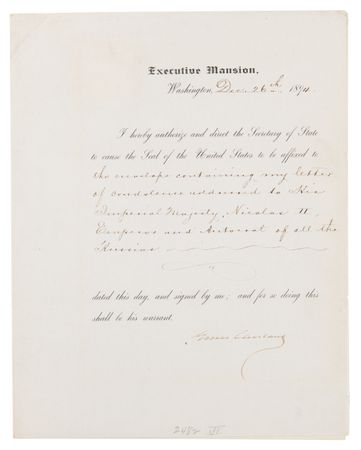 Executive Mansion,
Washington, Dec. 26th, 1894.
I hereby authorize and direct the Secretary of State
to cause the Seal of the United States to be affixed to
the envelope containing my letter
of condolence addressed to His
Imperial Majesty, Nicolas II,
Emperor and Autocrat of all the
Russias
dated this day, and signed by me; and for so doing this
shall be his warrant.
Grover Cleveland